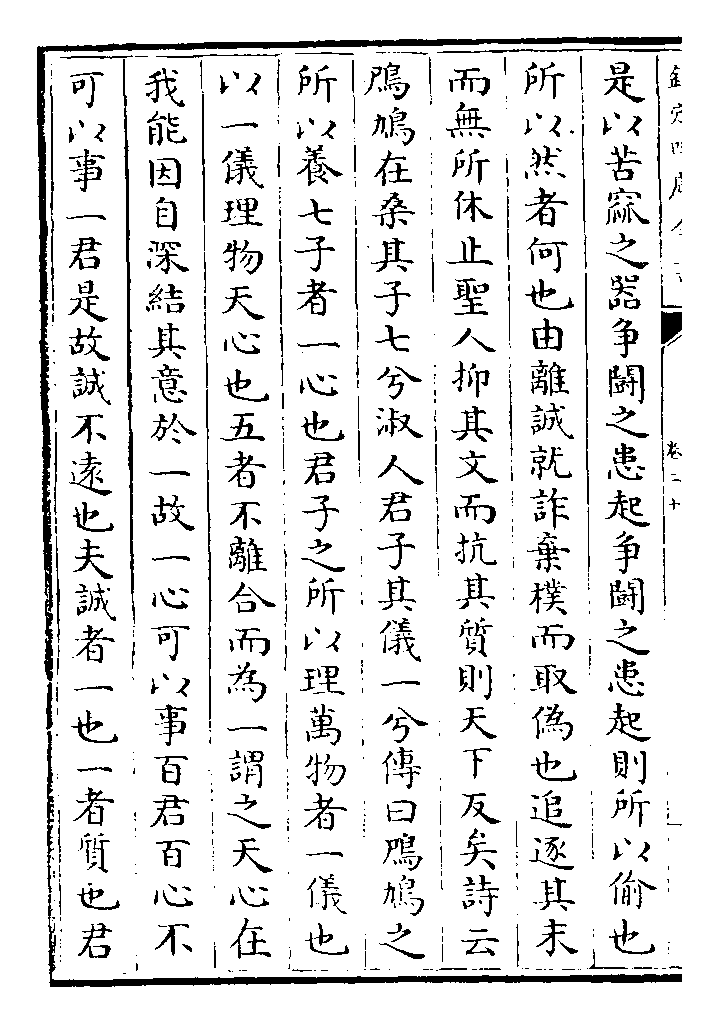 欽定四庫全書
卷二十
是以苦窳之器争鬭之患起争鬭之患起則所以偷也
所以然者何也由離誠就詐棄樸而取偽也追逐其末
而無所休止聖人抑其文而抗其質則天下反矣詩云
鳲鳩在桑其子七兮淑人君子其儀一兮傳曰鳲鳩之
所以養七子者一心也君子之所以理萬物者一儀也
以一儀理物天心也五者不離合而為一謂之天心在
我能因自深結其意於一故一心可以事百君百心不
可以事一君是故誠不遠也夫誠者一也一者質也君